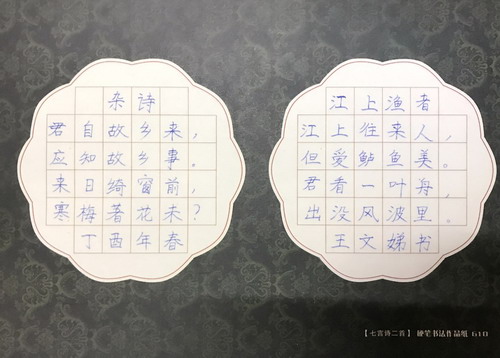 杂诗
君自故乡来，
应知故乡事。
来日绮窗前，
寒梅著花未？
丁酉年春
江上渔者
江上往来人，
但爱鲈鱼美。
君看一叶舟，
出没风波里。
王文娣书
【七言诗二首】 硬笔书法作品纸 G10